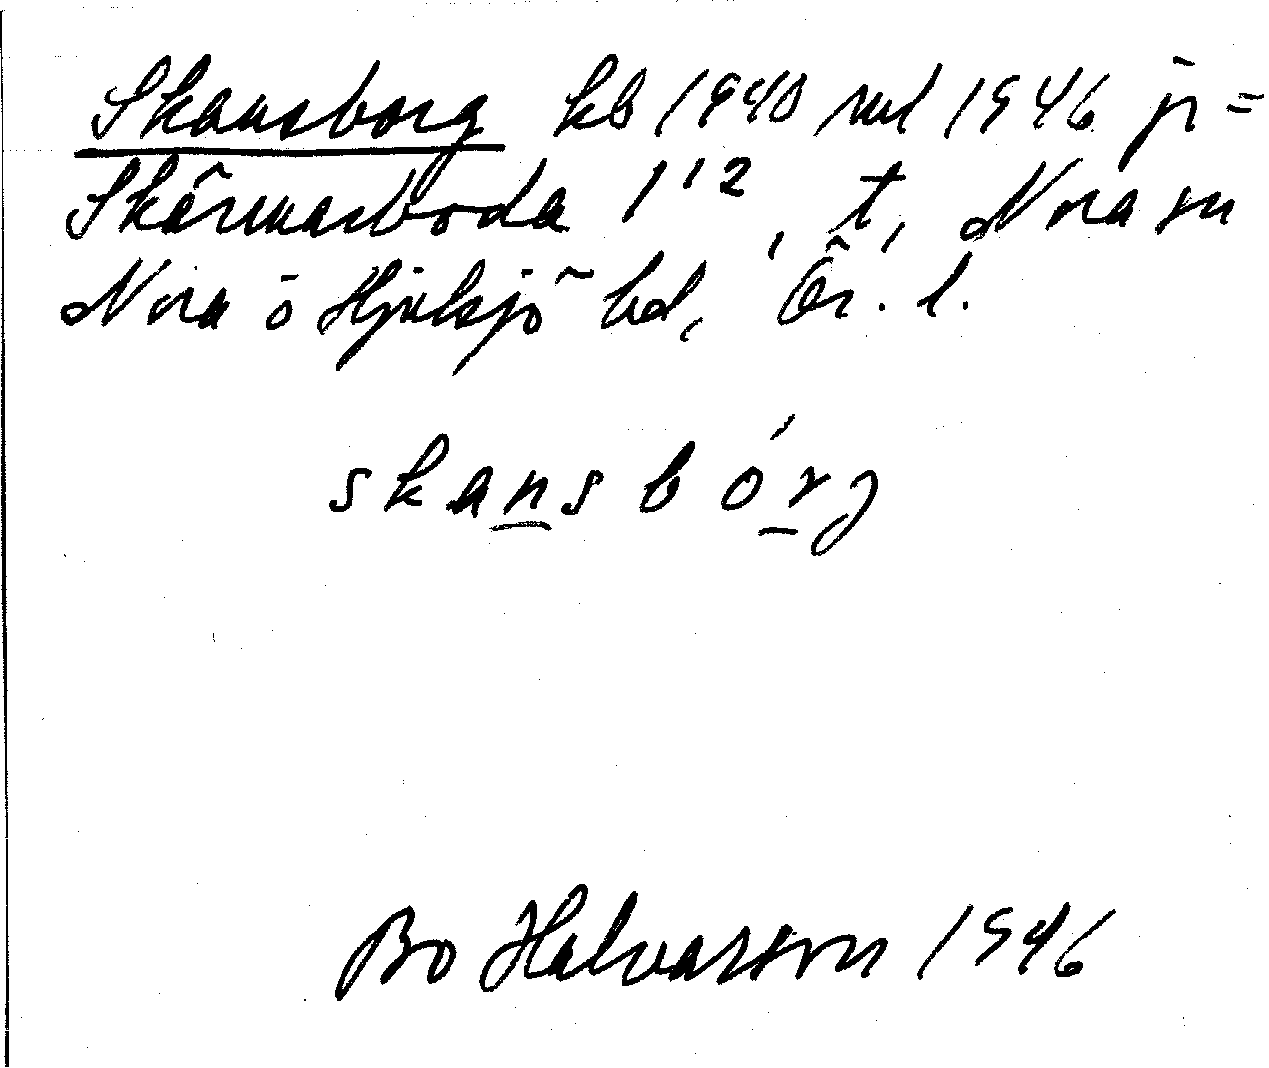 Skansborg kb 1940 rul 1946 jr =
Skärmarboda 1¹², t, Nora sn
Nora o Hjulsjö bd, Ör. l.
skansbórj
Bo Halvarsson 1946